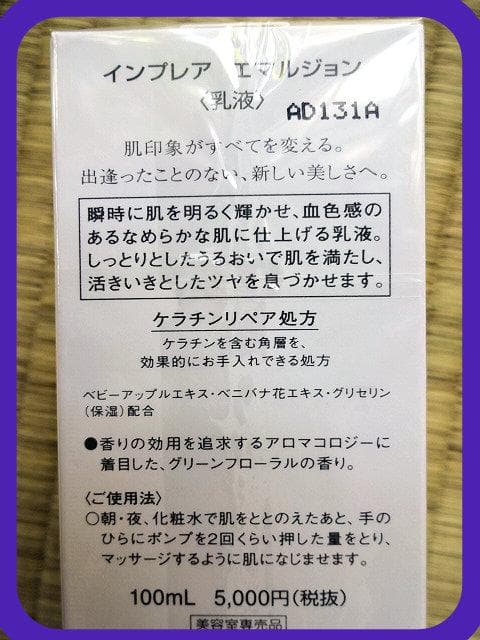 インプレア エマルジョン
〈乳液〉 AD131A
肌印象がすべてを変える。
出逢ったことのない、新しい美しさへ。
瞬時に肌を明るく輝かせ、血色感の
あるなめらかな肌に仕上げる乳液。
しっとりとしたうるおいで肌を満たし、
活きいきとしたツヤを息づかせます。
ケラチンリペア処方
ケラチンを含む角層を、
効果的にお手入れできる処方
ベビーアップルエキス・ベニバナ花エキス・グリセリン
（保湿）配合
●香りの効用を追求するアロマコロジーに
着目した、グリーンフローラルの香り。
〈ご使用法〉
○朝・夜、化粧水で肌をととのえたあと、手の
ひらにポンプを2回くらい押した量をとり、
マッサージするように肌になじませます。
100mL 5,000円（税抜）
美容室専売品